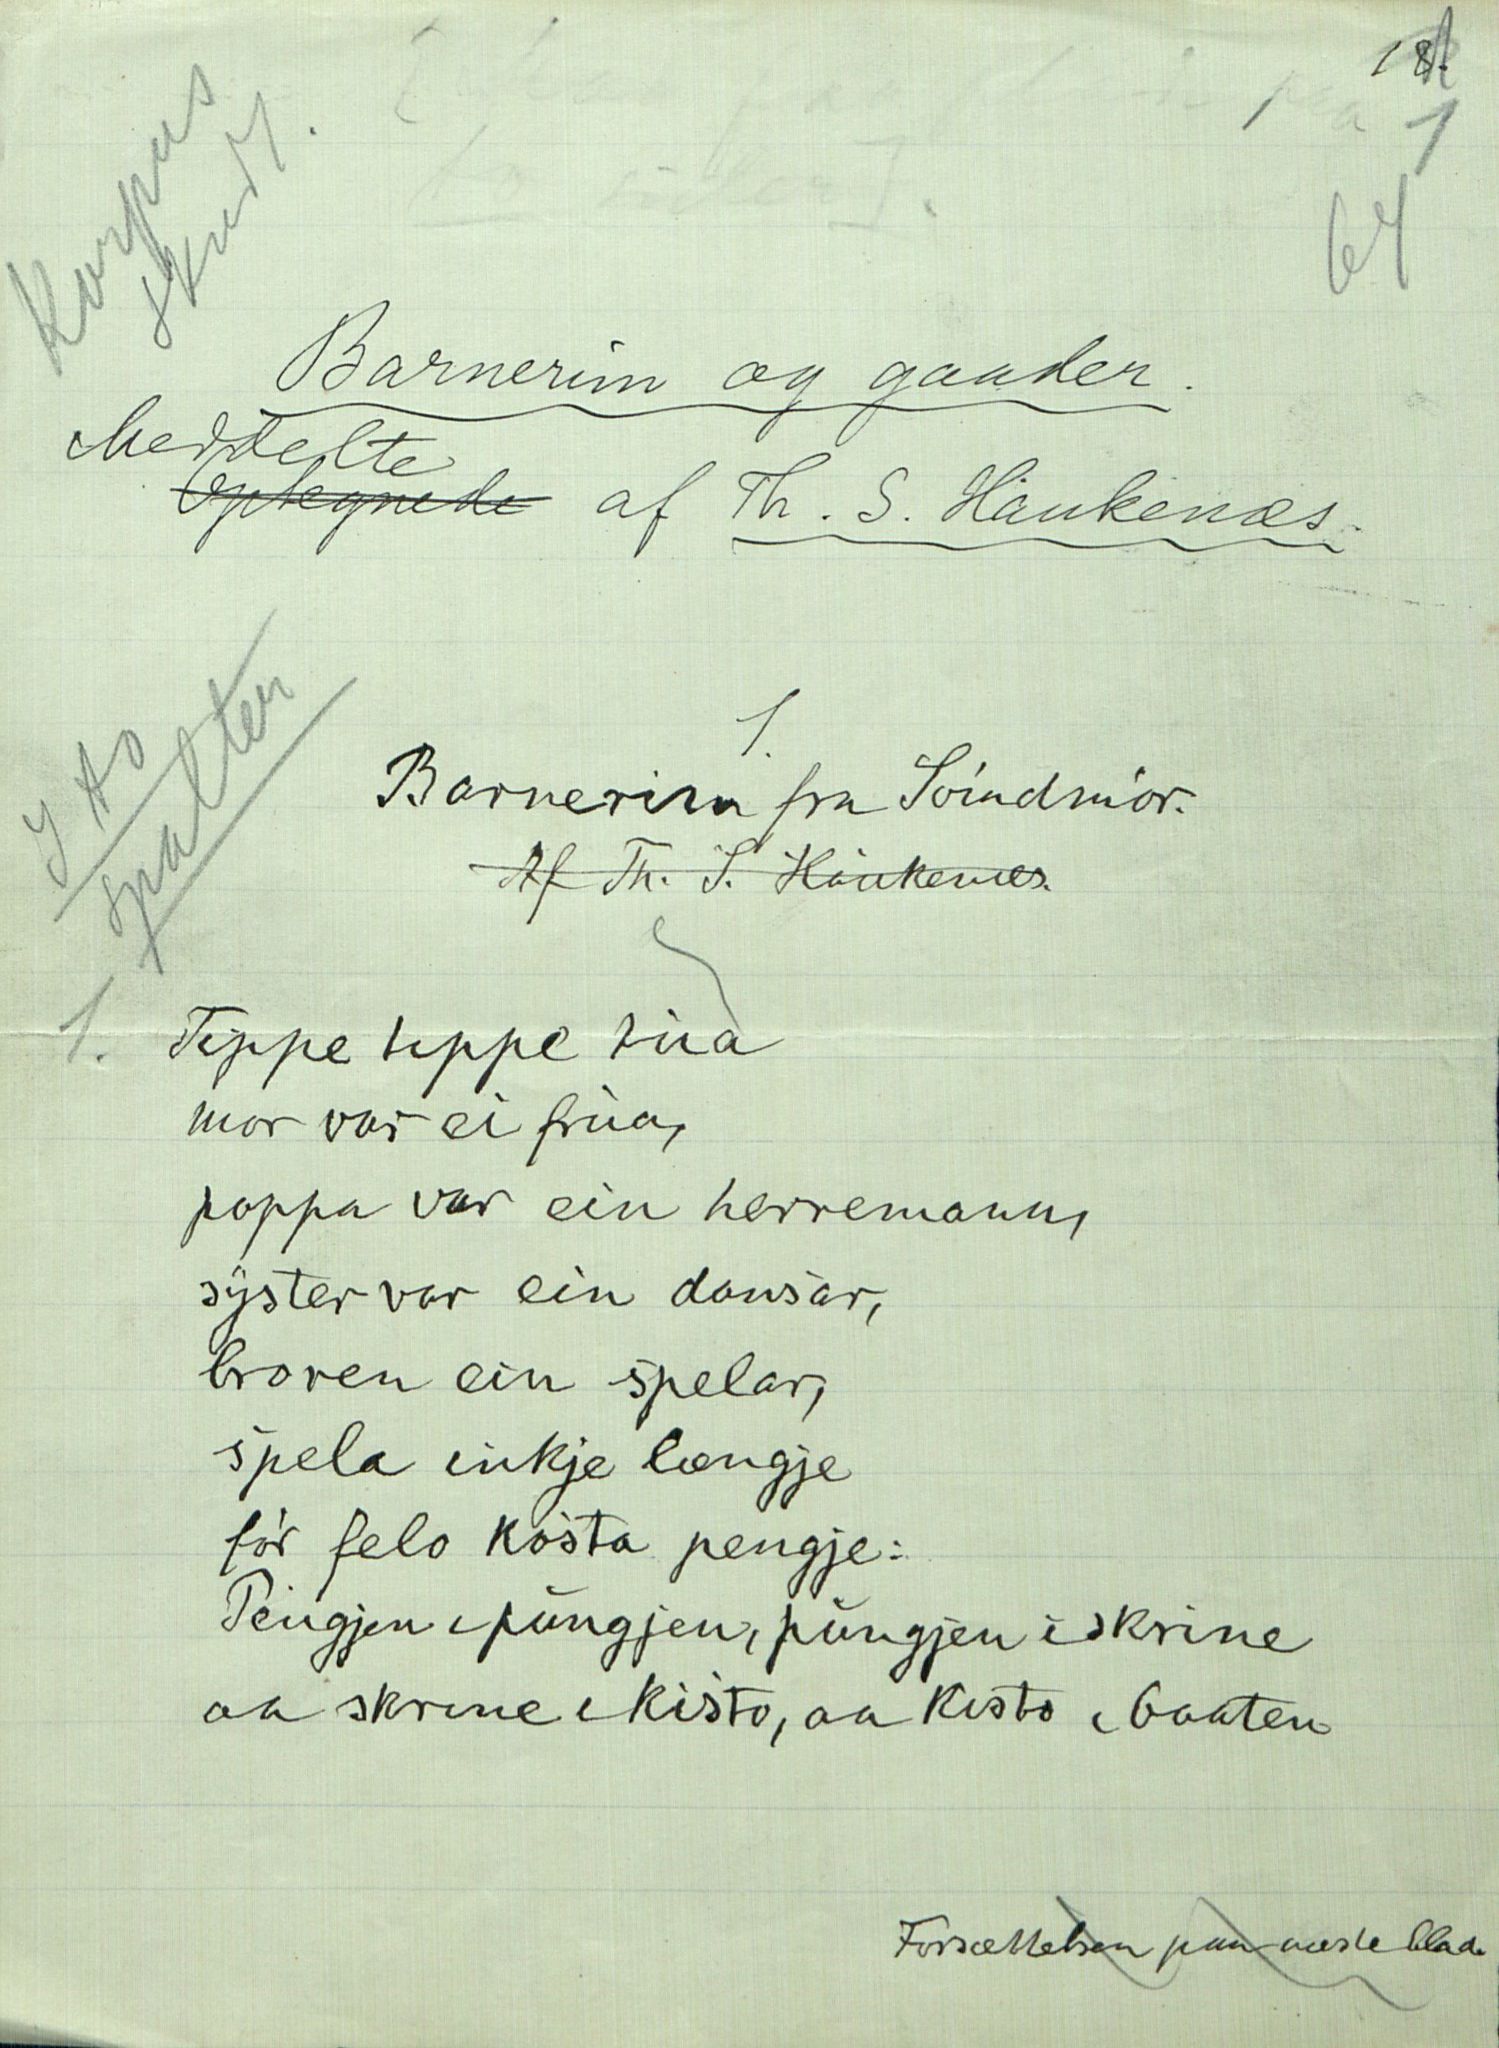 18.
1
64
Korpus
skrift.
Barnerim og gaader.
Meddelte
Optegnede af Th. S. Haukenæs.
I to
spalter
1.
Barnerim fra Söindmör.
Af Th. S. Haukenæs.
1.
Tippe tippe tua
mor var ei frua,
pappa var ein herremann,
syster var ein dansar,
broren ein spelar,
spela inkje længje
för felo kosta pengje:
Pengjen i pungjen, pungjen i skrine
aa skrine i kisto, aa kisto i baaten
Forsættelsen paa næste blad.